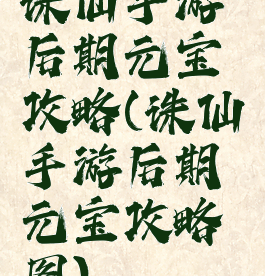 诛仙手游
后期元宝
攻略(诛仙
手游后期
元宝攻略
图)